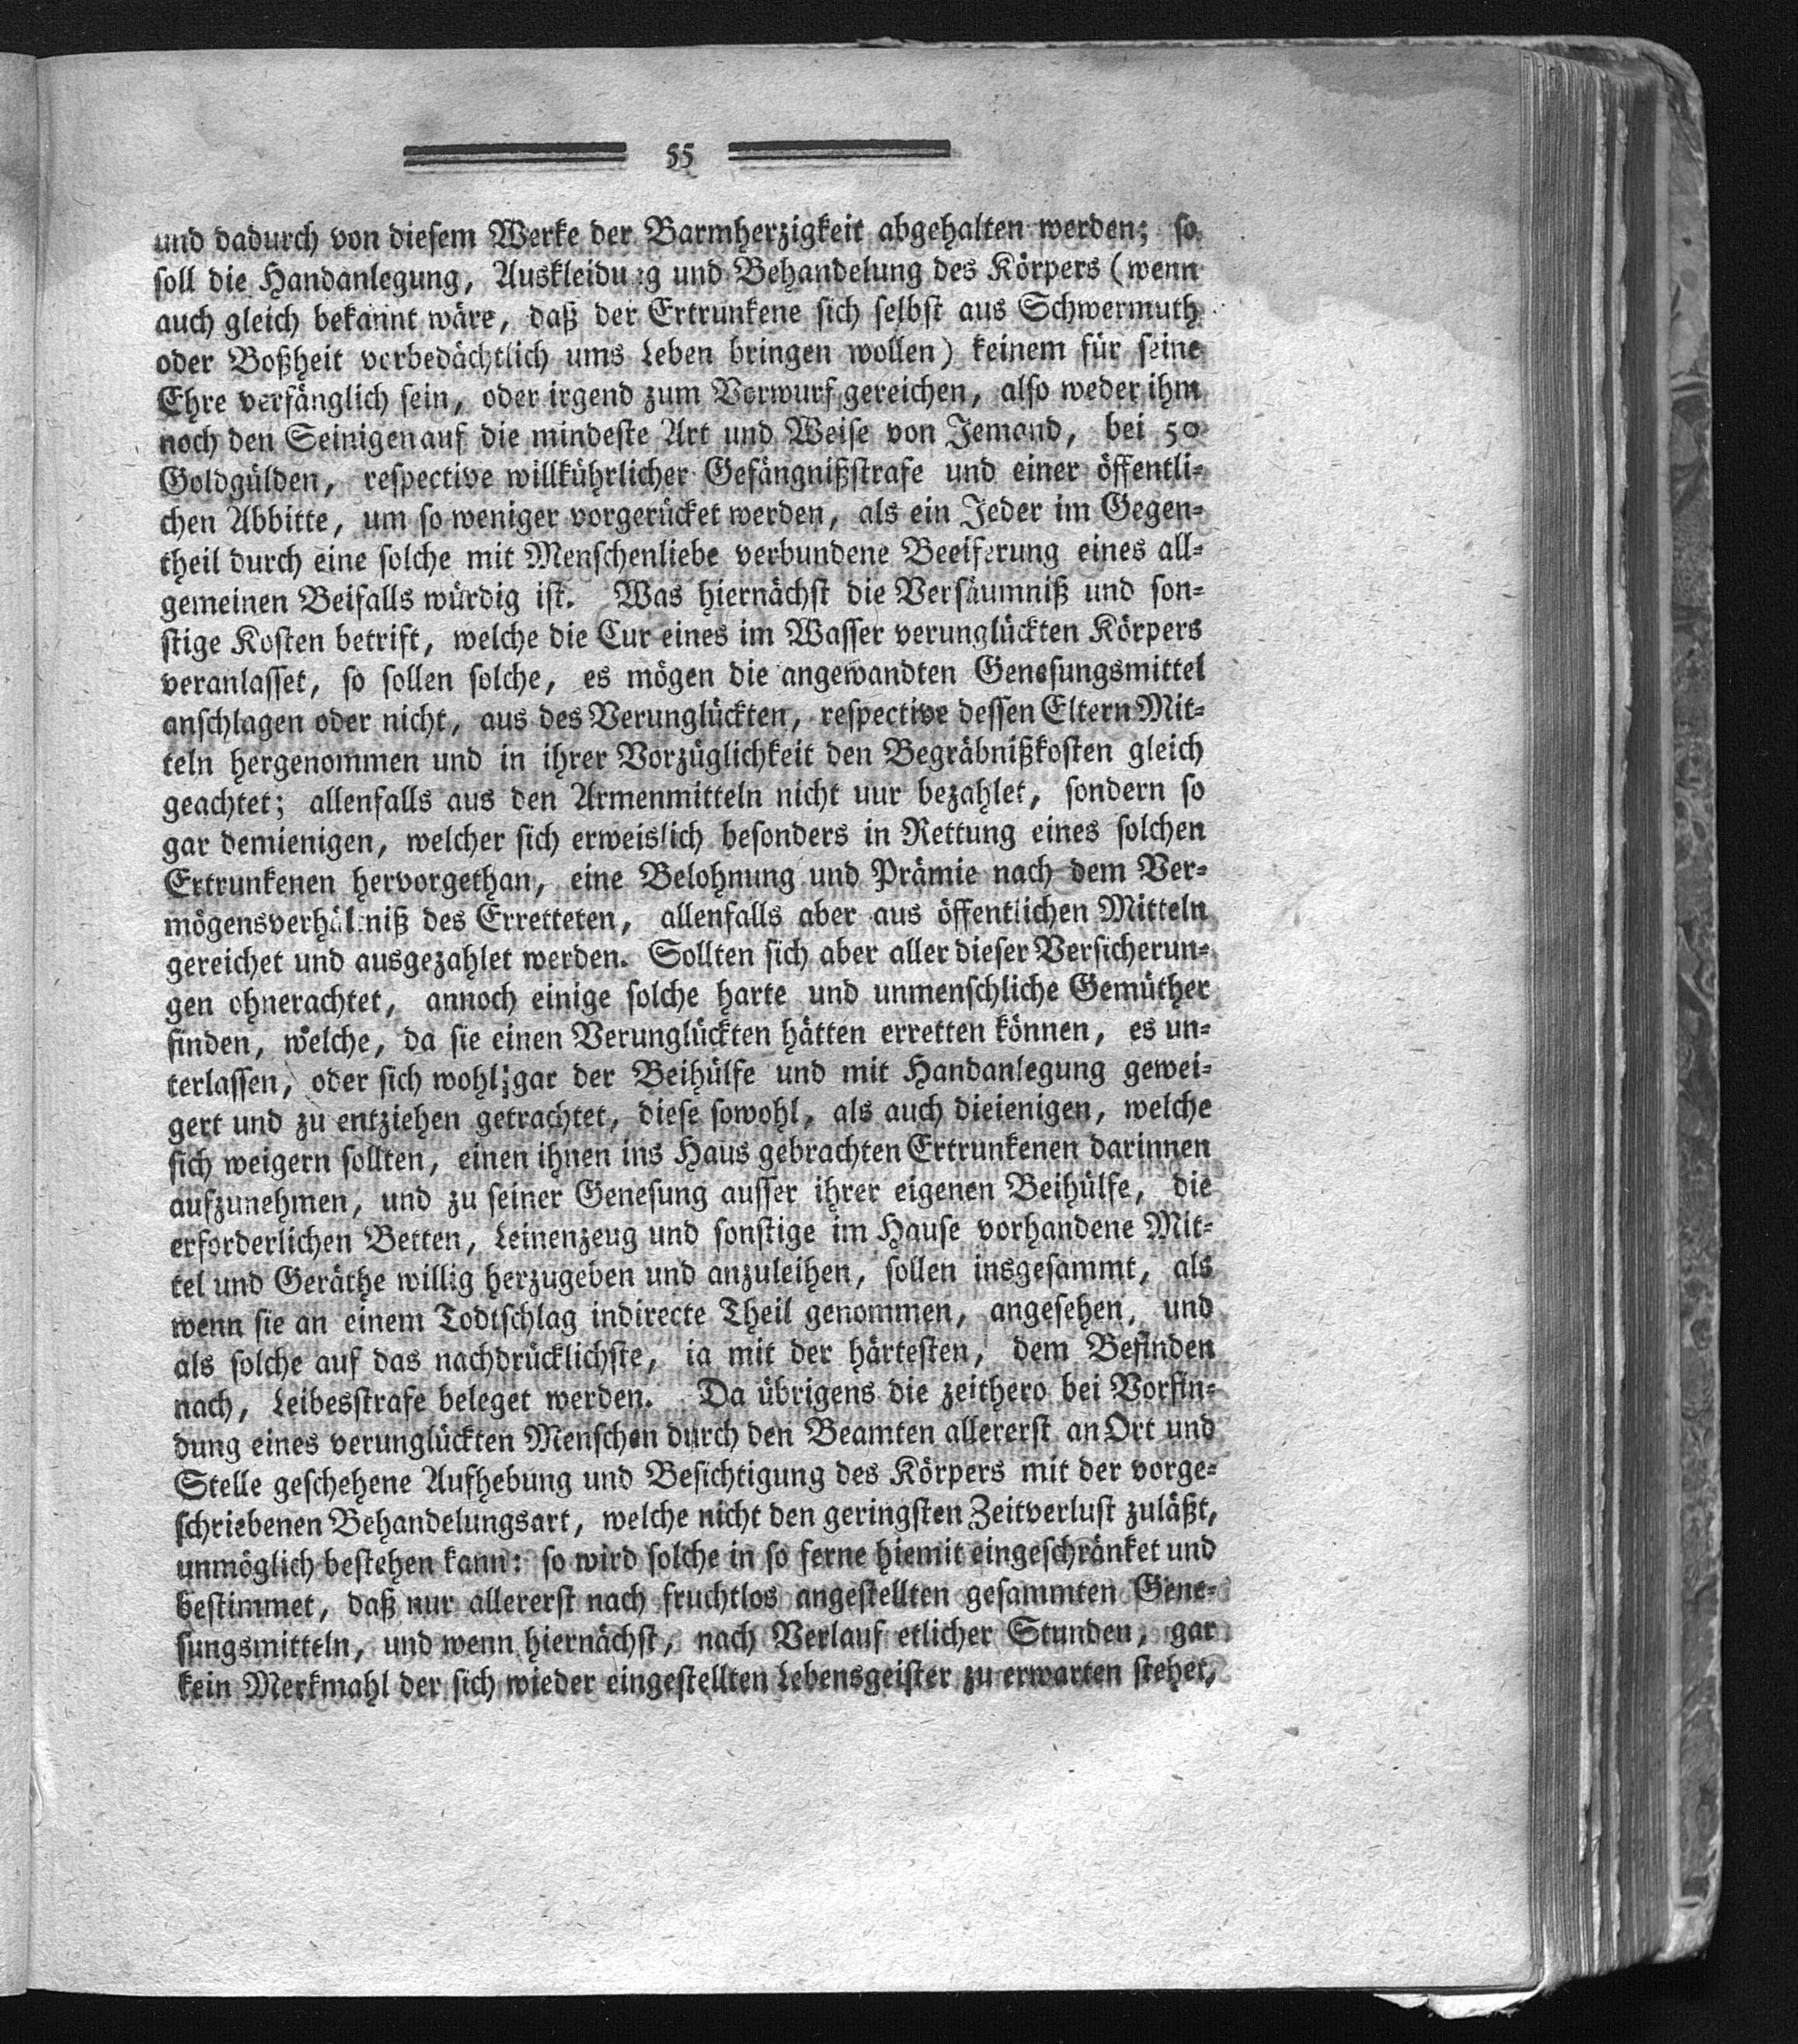 55
und dadurch von diesem Werke der Barmherzigkeit abgehalten werden; so
soll die Handanlegung, Auskleidung und Behandelung des Körpers (wenn
auch gleich bekannt wäre, daß der Ertrunkene sich selbst aus Schwermuth
oder Boßheit vorbedächtlich ums Leben bringen wollen) keinem für seine
Ehre verfänglich sein, oder irgend zum Vorwurf gereichen, also weder ihm
noch den Seinigen auf die mindeste Art und Weise von Jemand, bei 50
Goldgülden, respective willkührlicher Gefängnißstrafe und einer öffentli-
chen Abbitte, um so weniger vorgerücket werden, als ein Jeder im Gegen-
theil durch eine solche mit Menschenliebe verbundene Beeiferung eines all-
gemeinen Beifalls würdig ist. Was hiernächst die Versäumniß und son-
stige Kosten betrift, welche die Cur eines im Wasser verunglückten Körpers
veranlasset, so sollen solche, es mögen die angewandten Genesungsmittel
anschlagen oder nicht, aus des Verunglückten, respective dessen Eltern Mit-
teln hergenommen und in ihrer Vorzüglichkeit den Begräbnißkosten gleich
geachtet; allenfalls aus den Armenmitteln nicht uur bezahlet, sondern so
gar demienigen, welcher sich erweislich besonders in Rettung eines solchen
Ertrunkenen hervorgethan, eine Belohnung und Prämie nach dem Ver-
mögensverhältniß des Erretteten, allenfalls aber aus öffentlichen Mitteln
gereichet und ausgezahlet werden. Sollten sich aber aller dieser Versicherun-
gen ohnerachtet, annoch einige solche harte und unmenschliche Gemüther
finden, welche, da sie einen Verunglückten hätten erretten können, es un-
terlassen, oder sich wohl gar der Beihülfe und mit Handanlegung gewei-
gert und zu entziehen getrachtet, diese sowohl, als auch dieienigen, welche
sich weigern sollten, einen ihnen ins Haus gebrachten Ertrunkenen darinnen
aufzunehmen, und zu seiner Genesung ausser ihrer eigenen Beihülfe, die
erforderlichen Betten, Leinenzeug und sonstige im Hause vorhandene Mit-
tel und Geräthe willig herzugeben und anzuleihen, sollen insgesammt, als
wenn sie an einem Todtschlag indirecte Theil genommen, angesehen, und
als solche auf das nachdrücklichste, ia mit der härtesten, dem Befinden
nach, Leibesstrafe beleget werden. Da übrigens die zeithero bei Vorfin-
dung eines verunglückten Menschen durch den Beamten allererst an Ort und
Stelle geschehene Aufhebung und Besichtigung des Körpers mit der vorge-
schriebenen Behandelungsart, welche nicht den geringsten Zeitverlust zuläßt,
unmöglich bestehen kann: so wird solche in so ferne hiemit eingeschränket und
bestimmet, daß nur allererst nach fruchtlos angestellten gesammten Gene-
sungsmitteln, und wenn hiernächst, nach Verlauf etlicher Stunden, gar
kein Merkmahl der sich wieder eingestellten Lebensgeister zu erwarten stehet,